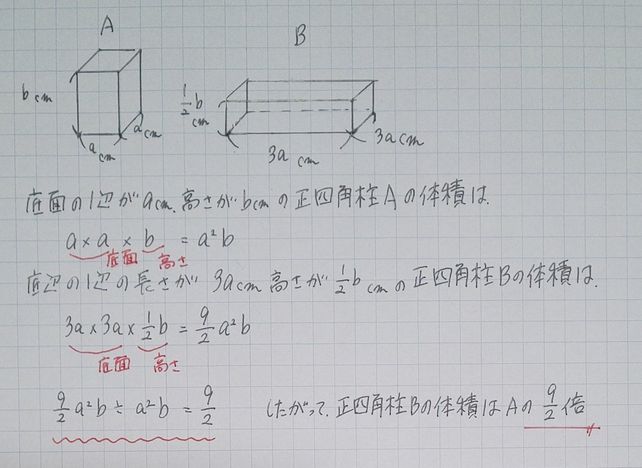 A
B
b cm
a cm
a cm
1/2 b cm
3a cm
3a cm
底面の1辺がacm、高さがbcmの正四角柱Aの体積は、
a×a×b = a²b
底面 高さ
底辺の1辺の長さが 3acm 高さが 1/2 b cmの正四角柱Bの体積は、
3a×3a×1/2 b = 9/2 a²b
底面 高さ
9/2 a²b ÷ a²b = 9/2 したがって、正四角柱Bの体積はAの 9/2 倍